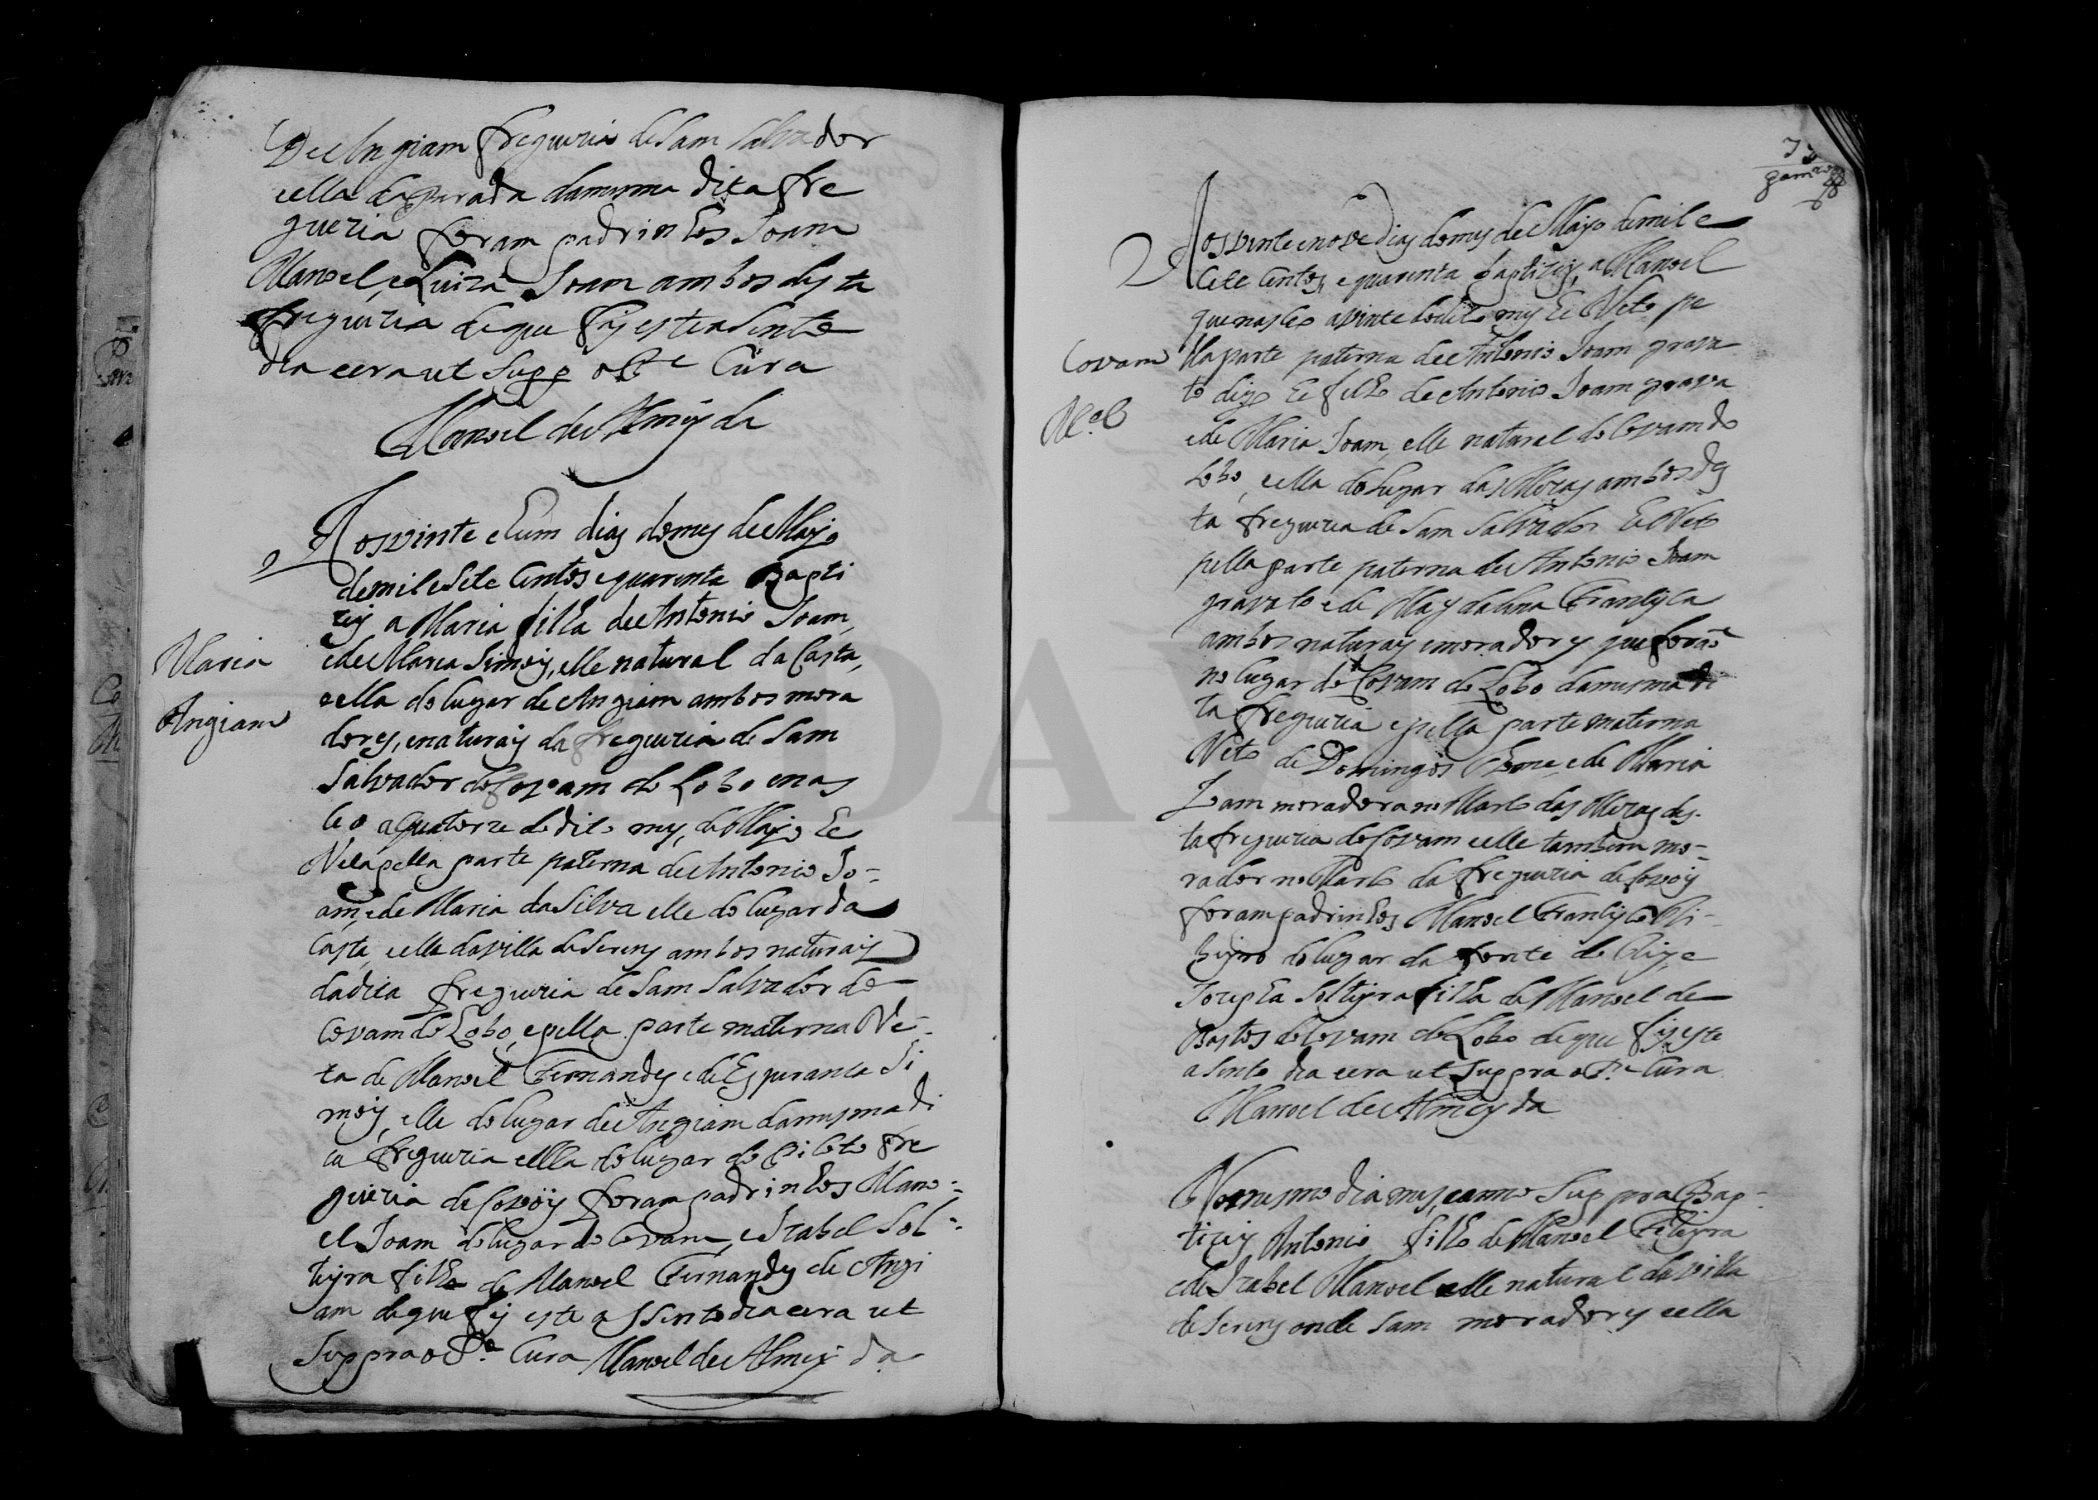 De Angiam freguezia de Sam Salvador
eella da Parada damesma dita fre
guezia foram padrinhos Joam
Manoel, e Luiza Joam ambos desta
freguezia deque fis este asento
dia eera ut Supp o P.e Cura
Manoel de Almeyda
Aos vinte ehum dias domes de Mayo
demil e Sete Centos e quarenta Bapti
zey a Maria filha de Antonio Joam,
ede Maria Simoiz, elle natural da Costa,
eella do lugar de Angiam ambos mora
dores, enaturais da freguezia de Sam
Salvador do Covam do Lobo enas
ceo a quatorze do dito mes, de Mayo he
Neta pella parte paterna de Antonio Jo-
am, e de Maria da Silva elle do lugar da
Costa, eella davilla de Sereny ambos naturais
dadita freguezia de Sam Salvador do
Covam do Lobo, epella parte materna Ne-
ta de Manoel Fernandes e de Esperanca Si
moiz, elle do lugar de Angiam damesma di
ta freguezia eella do lugar do fre
guezia de Covoiz foram padrinhos Mano-
el Joam do lugar do Covam, e Izabel Sol-
teyra filha de Manoel Fernandes de Angi
am deque fis este assento dia eera ut
Suppra o P.e Cura Manoel de Almeyda
Maria
Angiam
Aos vinte enove dias domes de Mayo demil e
Sete Centos e quarenta baptizey a Manoel
que nasceo avinte dodito mes he Neto pe
lla parte paterna de Antonio Joam grava
to digo he filho de Antonio Joam grava
ede Maria Joam, elle natural do Covam do
Lobo, eella do lugar das Mezas ambos des
ta freguezia de Sam Salvador he Neto
pella parte paterna de Antonio Joam
gravato e de Magdalena Francisca
ambos naturais emoradores que foram
no lugar do Covam do Lobo damesma di
ta freguezia e pella parte materna
Neto de Domingos Thome, e de Maria
Joam moradora no das Mezas des-
ta freguezia do Covam eelle tambem mo-
rador no da freguezia de Covoiz
foram padrinhos Manoel Francisco Ri-
beyro do lugar da fonte de e
Jozepha Solteyra filha de Manoel de
Bastos do Covam do Lobo deque fis este
asento dia eera ut Suppra o P.e Cura
Manoel de Almeyda
Covam
M.el
Nomesmo dia mes, eanno Suppra Bap-
tizey Antonio filho de Manoel
ede Izabel Manoel elle natural davilla
de Sereny onde Sam moradores eella